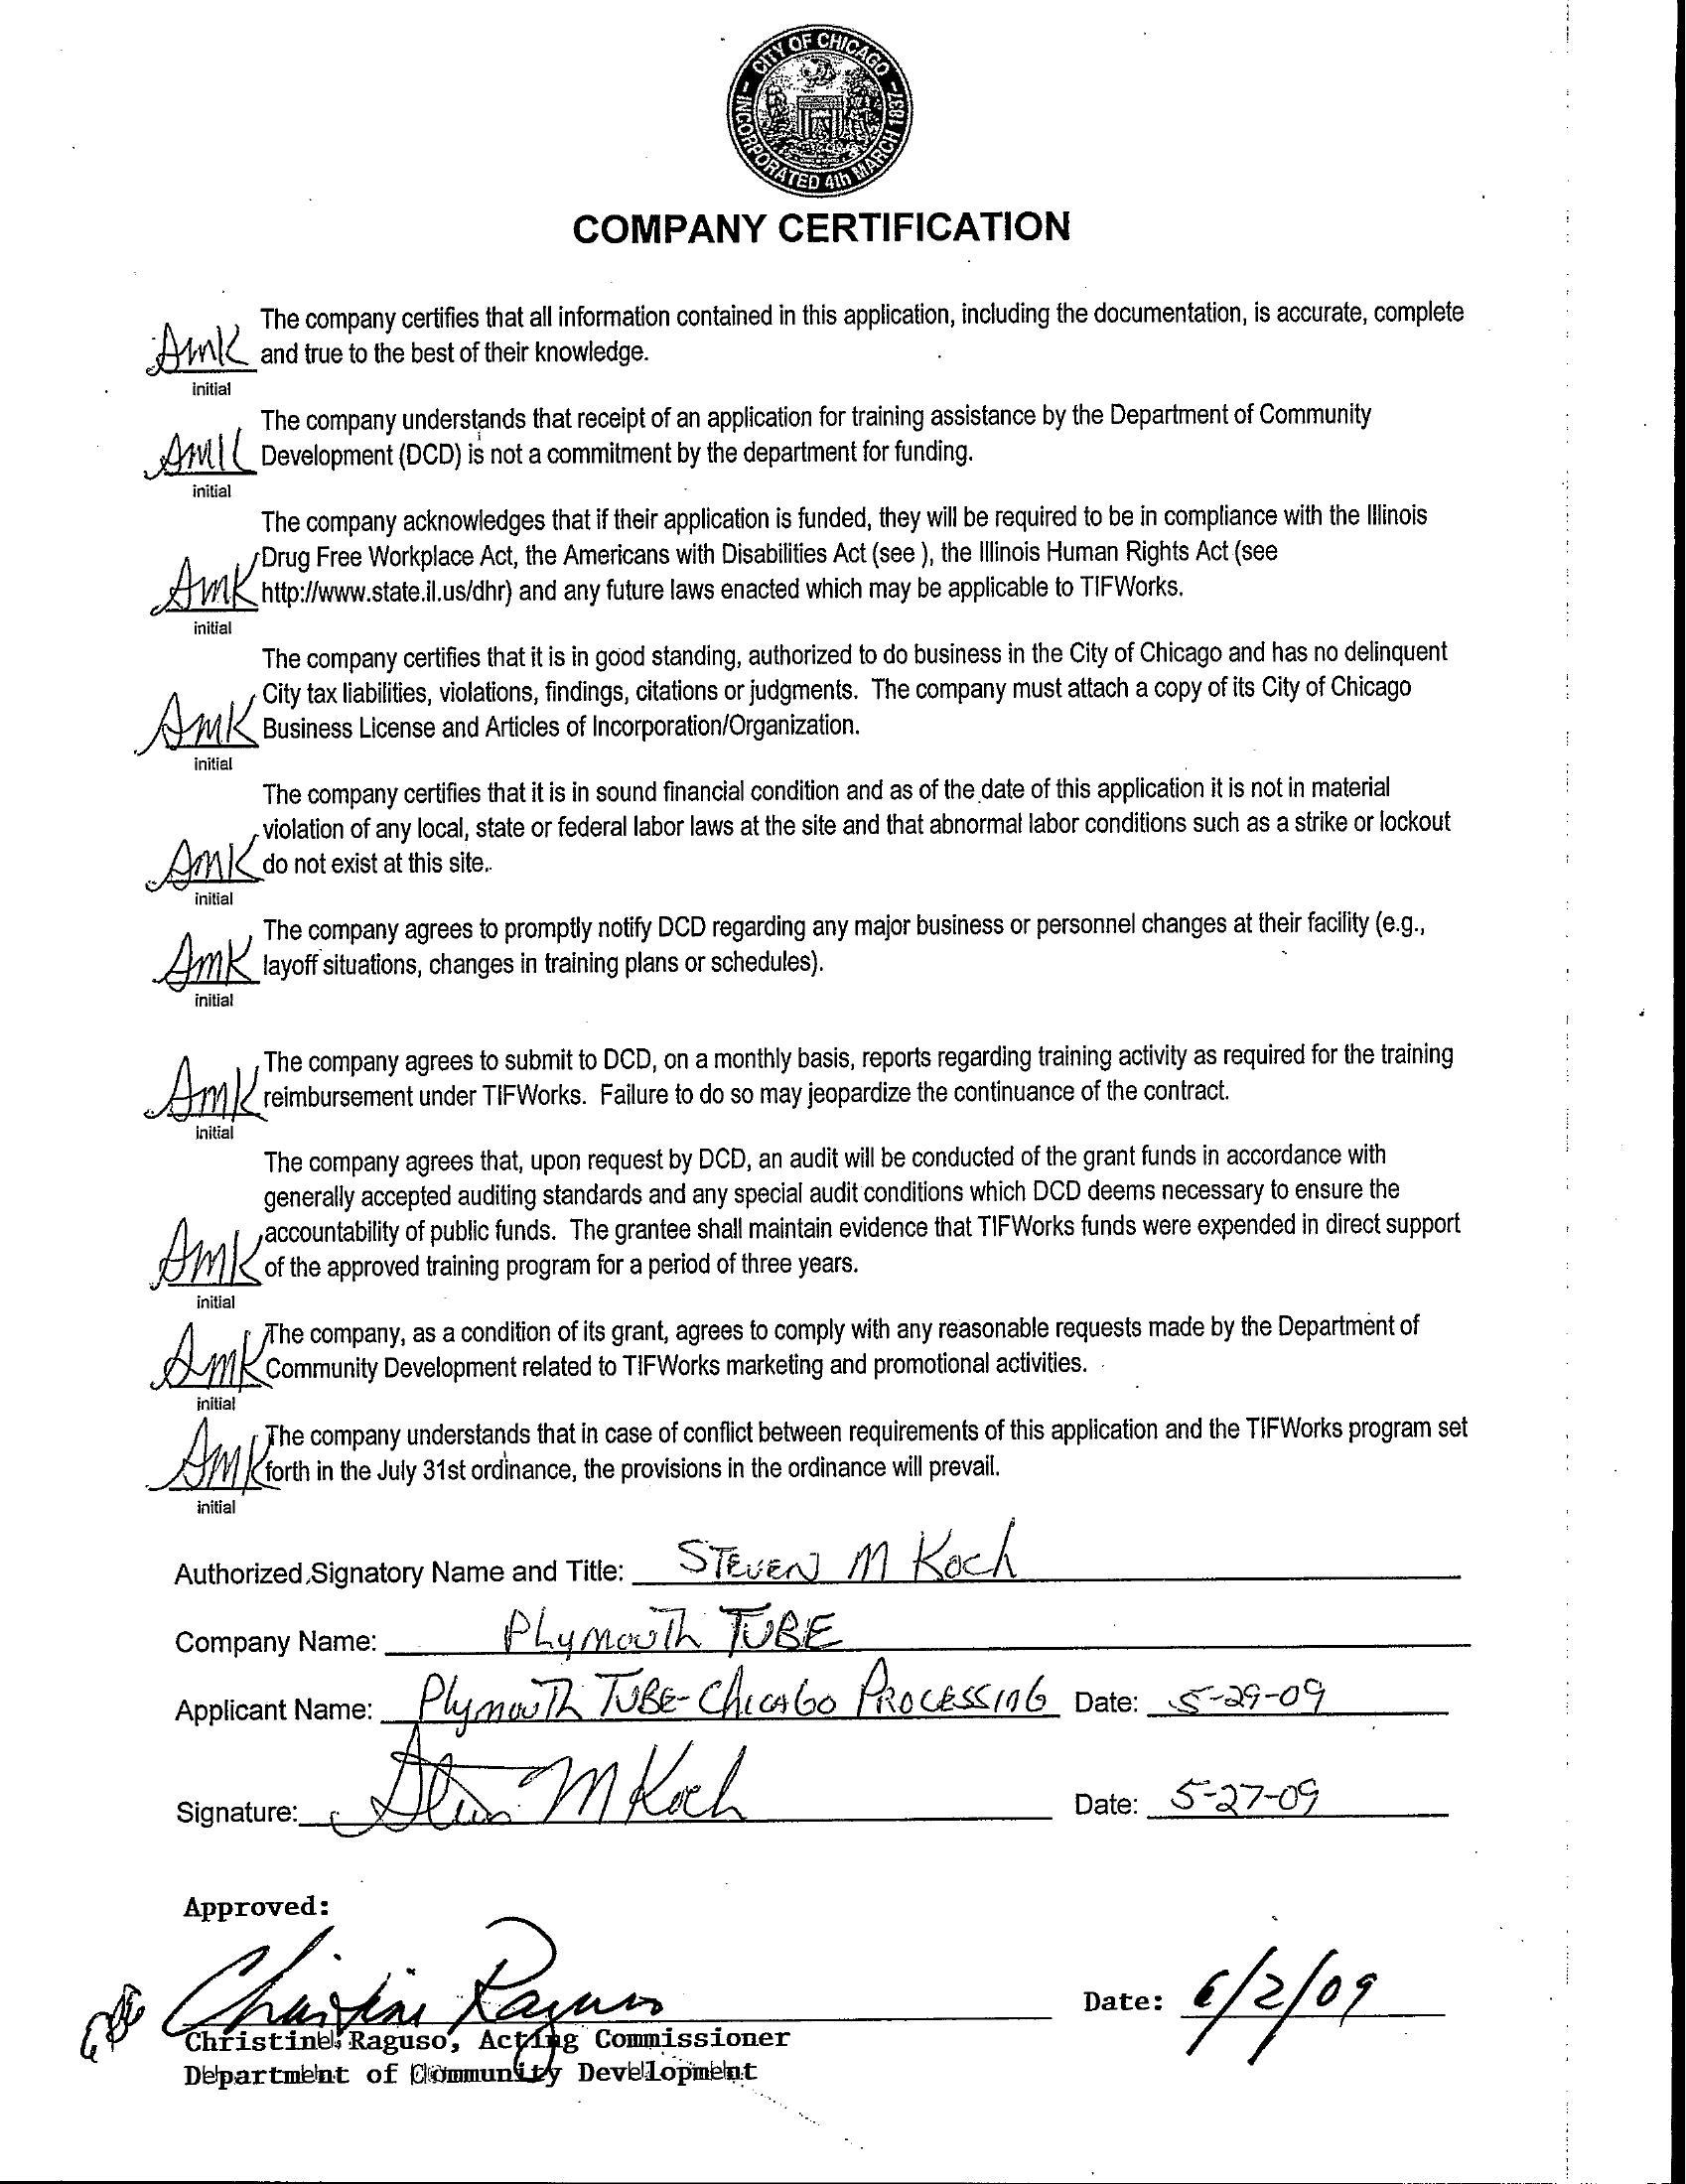 CITY OF CHICAGO
INCORPORATED 4th MARCH 1837
COMPANY CERTIFICATION
The company certifies that all information contained in this application, including the documentation, is accurate, complete
SMK and true to the best of their knowledge.
initial
The company understands that receipt of an application for training assistance by the Department of Community
SMK Development (DCD) is not a commitment by the department for funding.
initial
The company acknowledges that if their application is funded, they will be required to be in compliance with the Illinois
Drug Free Workplace Act, the Americans with Disabilities Act (see ), the Illinois Human Rights Act (see
SMK http://www.state.il.us/dhr) and any future laws enacted which may be applicable to TIFWorks.
initial
The company certifies that it is in good standing, authorized to do business in the City of Chicago and has no delinquent
City tax liabilities, violations, findings, citations or judgments. The company must attach a copy of its City of Chicago
SMK Business License and Articles of Incorporation/Organization.
initial
The company certifies that it is in sound financial condition and as of the date of this application it is not in material
violation of any local, state or federal labor laws at the site and that abnormal labor conditions such as a strike or lockout
SMK do not exist at this site..
initial
The company agrees to promptly notify DCD regarding any major business or personnel changes at their facility (e.g.,
SMK layoff situations, changes in training plans or schedules).
initial
The company agrees to submit to DCD, on a monthly basis, reports regarding training activity as required for the training
SMK reimbursement under TIFWorks. Failure to do so may jeopardize the continuance of the contract.
initial
The company agrees that, upon request by DCD, an audit will be conducted of the grant funds in accordance with
generally accepted auditing standards and any special audit conditions which DCD deems necessary to ensure the
accountability of public funds. The grantee shall maintain evidence that TIFWorks funds were expended in direct support
SMK of the approved training program for a period of three years.
initial
The company, as a condition of its grant, agrees to comply with any reasonable requests made by the Department of
SMK Community Development related to TIFWorks marketing and promotional activities.
initial
The company understands that in case of conflict between requirements of this application and the TIFWorks program set
SMK forth in the July 31st ordinance, the provisions in the ordinance will prevail.
initial
Authorized Signatory Name and Title: STEVEN M KOCH
Company Name: PLYMOUTH TUBE
Applicant Name: PLYMOUTH TUBE-CHICAGO PROCESSING Date: 5-29-09
Signature: Steven M Koch Date: 5-27-09
Approved:
Christine Raguso Date: 6/2/09
Christine Raguso, Acting Commissioner
Department of Community Development